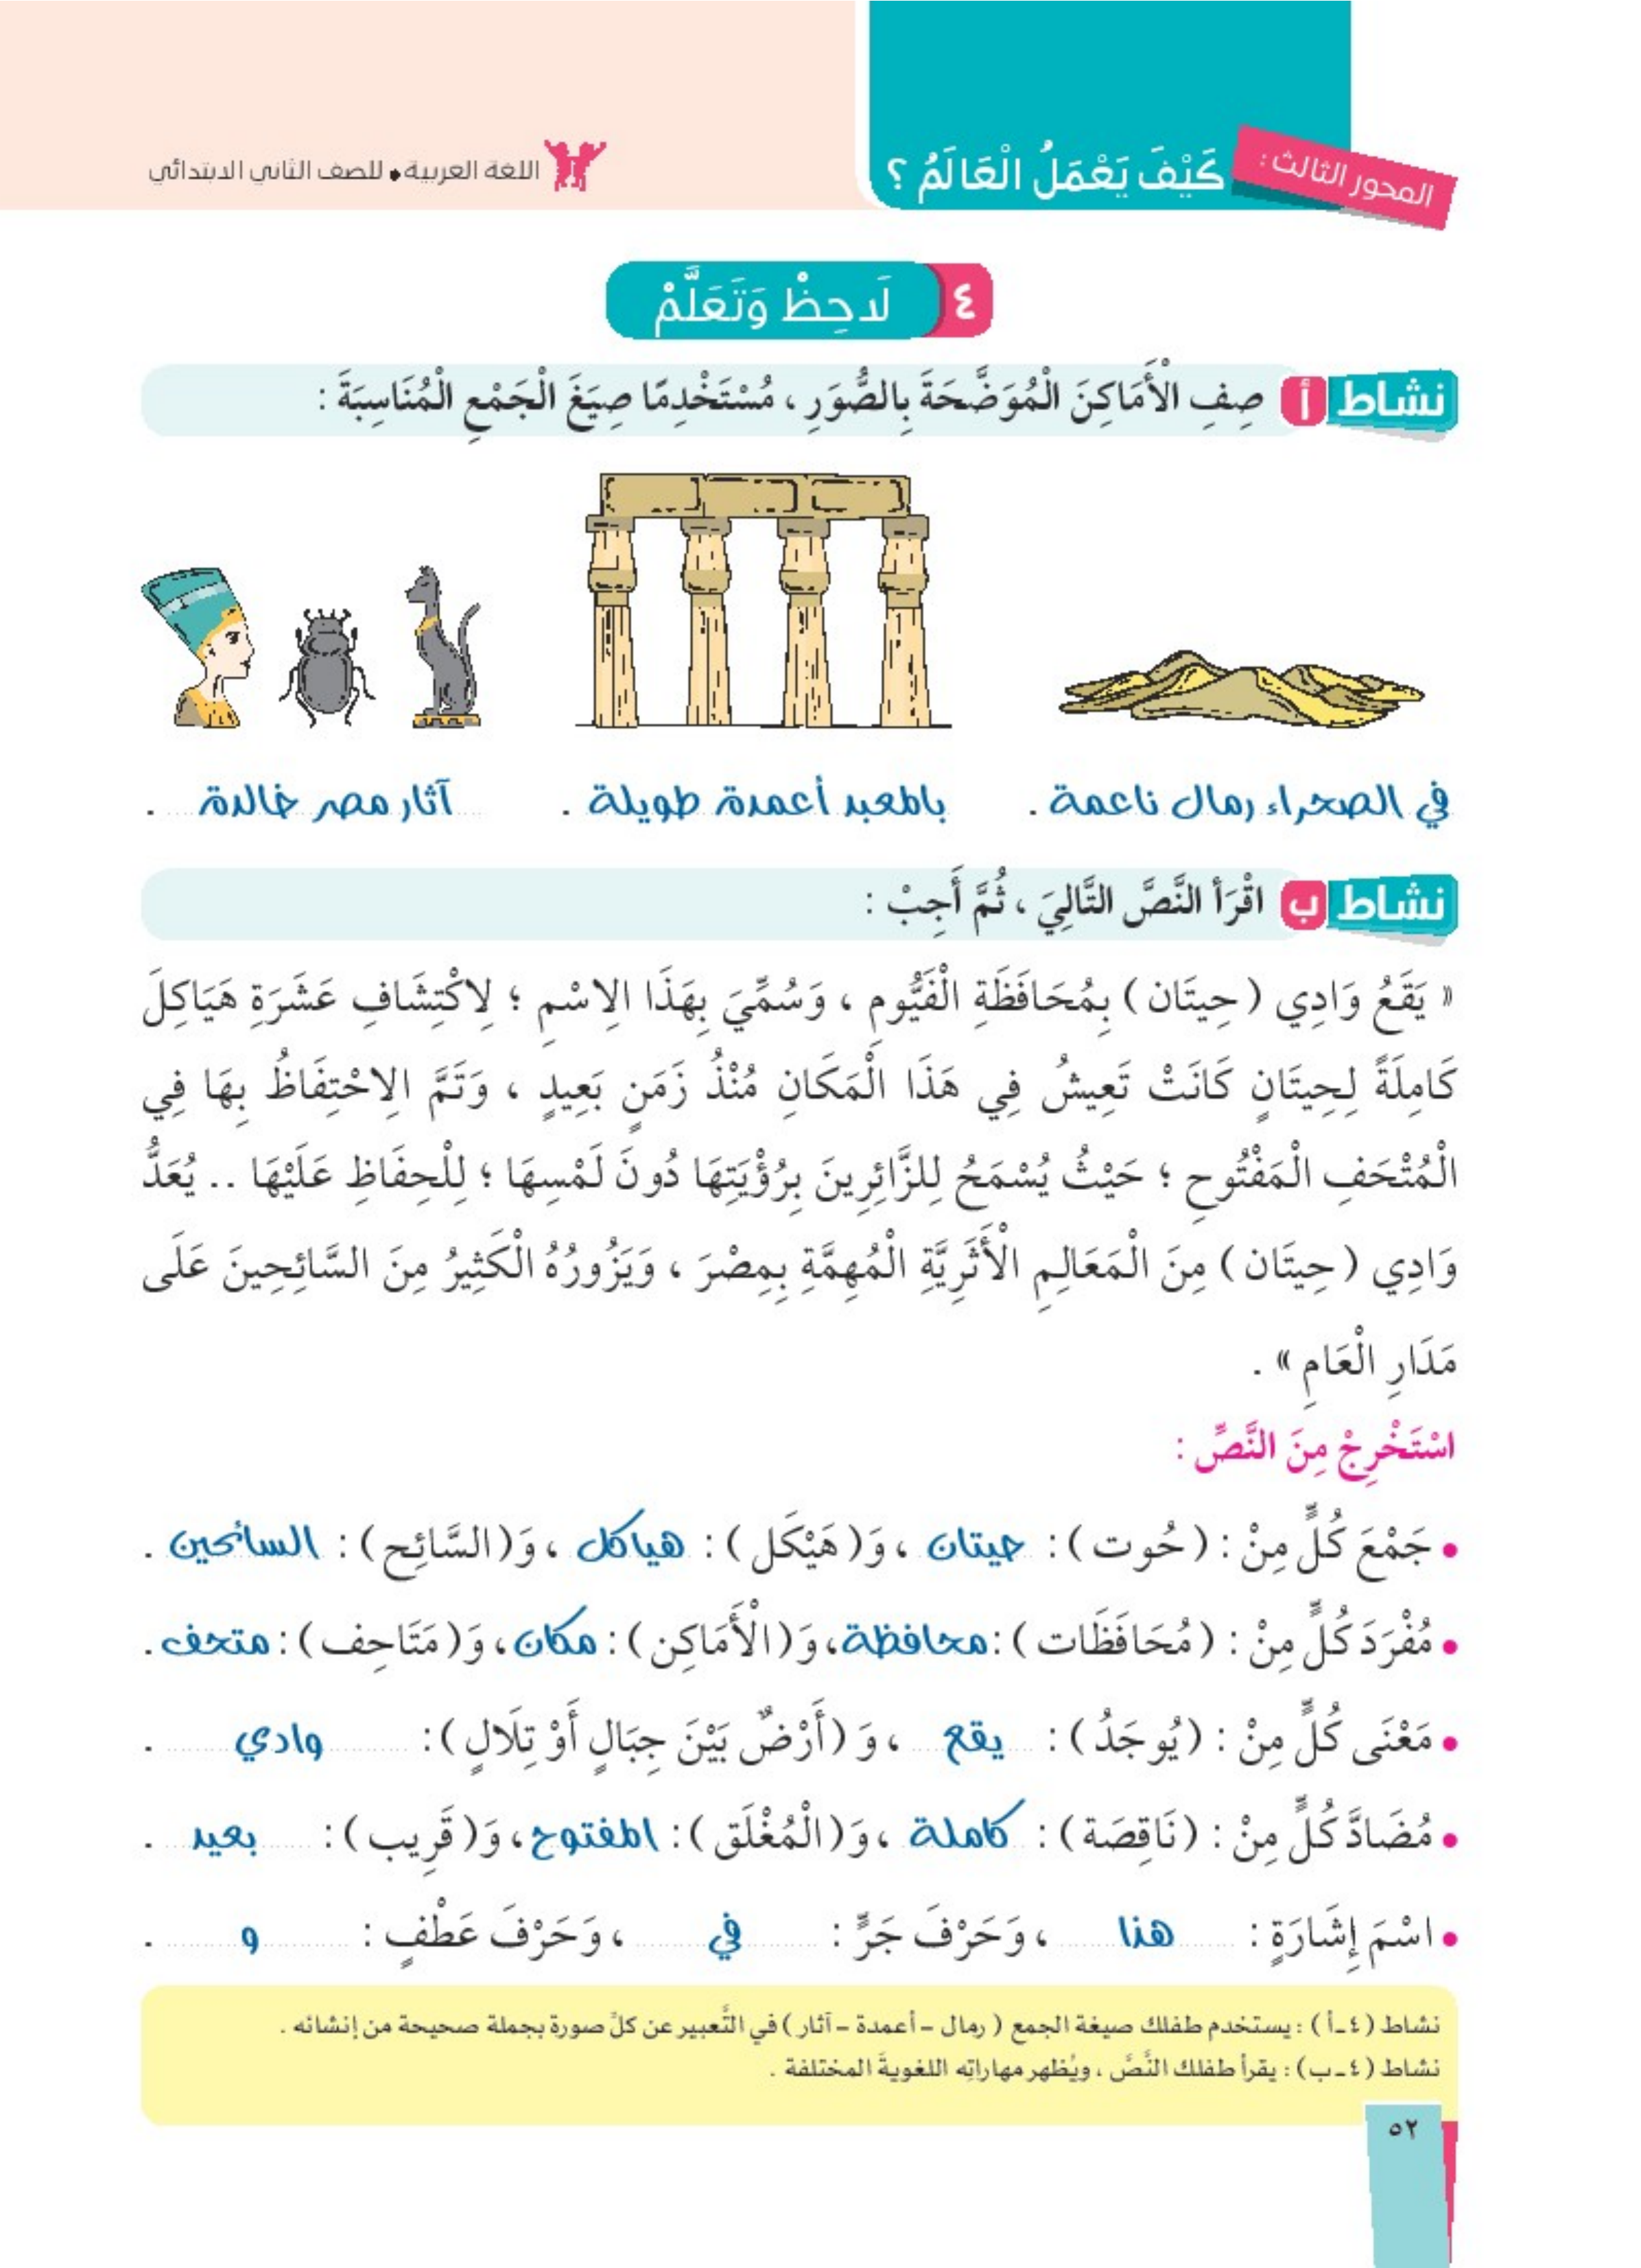 المحور الثالث :
كَيْفَ يَعْمَلُ الْعَالَمُ ؟
اللغة العربية • للصف الثاني الابتدائي
٤ لَاحِظْ وَتَعَلَّمْ
نشاط أ صِفِ الْأَمَاكِنَ الْمُوَضَّحَةَ بِالصُّوَرِ ، مُسْتَخْدِمًا صِيَغَ الْجَمْعِ الْمُنَاسِبَةَ :
في الصحراء رمال ناعمة . بالمعبد أعمدة طويلة . آثار مصر خالدة .
نشاط ب اقْرَأ النَّصَّ التَّالِيَ ، ثُمَّ أَجِبْ :
« يَقَعُ وَادِي ( حِيتَان ) بِمُحَافَظَةِ الْفَيُّومِ ، وَسُمِّيَ بِهَذَا الِاسْمِ ؛ لِاكْتِشَافِ عَشَرَةِ هَيَاكِلَ
كَامِلَةً لِحِيتَانٍ كَانَتْ تَعِيشُ فِي هَذَا الْمَكَانِ مُنْذُ زَمَنٍ بَعِيدٍ ، وَتَمَّ الِاحْتِفَاظُ بِهَا فِي
الْمُتْحَفِ الْمَفْتُوحِ ؛ حَيْثُ يُسْمَحُ لِلزَّائِرِينَ بِرُؤْيَتِهَا دُونَ لَمْسِهَا ؛ لِلْحِفَاظِ عَلَيْهَا .. يُعَدُّ
وَادِي ( حِيتَان ) مِنَ الْمَعَالِمِ الْأَثَرِيَّةِ الْمُهِمَّةِ بِمِصْرَ ، وَيَزُورُهُ الْكَثِيرُ مِنَ السَّائِحِينَ عَلَى
مَدَارِ الْعَامِ » .
اسْتَخْرِجْ مِنَ النَّصِّ :
• جَمْعَ كُلٍّ مِنْ : ( حُوت ) : حيتان ، وَ( هَيْكَل ) : هياكل ، وَ( السَّائِح ) : السائحين .
• مُفْرَدَ كُلٍّ مِنْ : ( مُحَافَظَات ) : محافظة ، وَ( الْأَمَاكِن ) : مكان ، وَ( مَتَاحِف ) : متحف .
• مَعْنَى كُلٍّ مِنْ : ( يُوجَدُ ) : يقع ، وَ ( أَرْضٌ بَيْنَ جِبَالٍ أَوْ تِلَالٍ ) : وادي .
• مُضَادَّ كُلٍّ مِنْ : ( نَاقِصَة ) : كاملة ، وَ( الْمُغْلَق ) : المفتوح ، وَ( قَرِيب ) : بعيد .
• اسْمَ إِشَارَةٍ : هذا ، وَحَرْفَ جَرٍّ : في ، وَحَرْفَ عَطْفٍ : و .
نشاط ( ٤ - أ ) : يستخدم طفلك صيغة الجمع ( رمال - أعمدة - آثار ) في التَّعبير عن كلِّ صورة بجملة صحيحة من إنشائه .
نشاط ( ٤ - ب ) : يقرأ طفلك النَّصَّ ، ويُظهر مهاراتِه اللغويةَ المختلفة .
٥٢